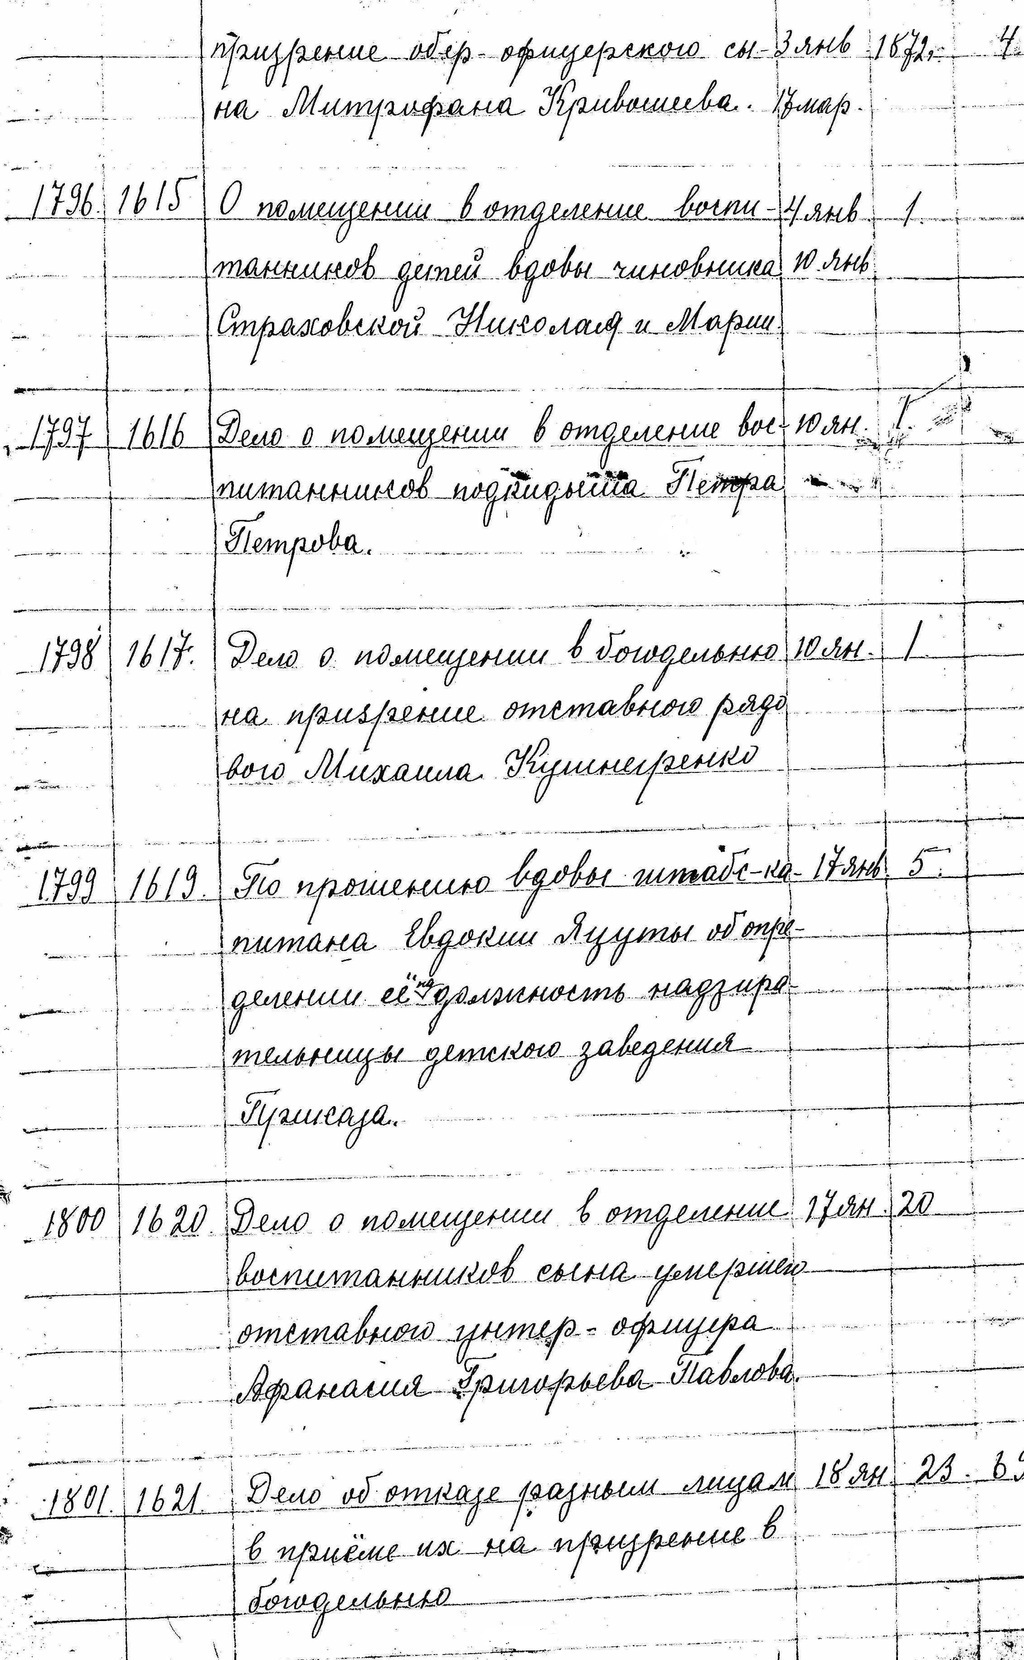 призрение обер-офицерского сы- 3 янв 1872. 4.
на Митрофана Кривошеева. 17 мар.
1796. 1615 О помещении в отделение воспи- 4 янв 1.
танников детей вдовы чиновника 10 янв.
Страховской Николая и Марии.
1797 1616 Дело о помещении в отделение вос- 10 ян. 1.
питанников подкидыша Петра
Петрова.
1798 1617. Дело о помещении в богодельню 10 ян. 1.
на призрение отставного рядо
вого Михаила Кушнеренко
1799 1619. По прошению вдовы штабс-ка- 17 янв 5.
питана Евдокии Яцуты об опре-
делении её на должность надзира-
тельницы детского заведения
Приказа.
1800 1620. Дело о помещении в отделение 17 ян. 20
воспитанников сына умершего
отставного унтер-офицера
Афанасия Григорьева Павлова.
1801. 1621. Дело об отказе разным лицам 18 ян 23.
в приёме их на призрение в
богодельню